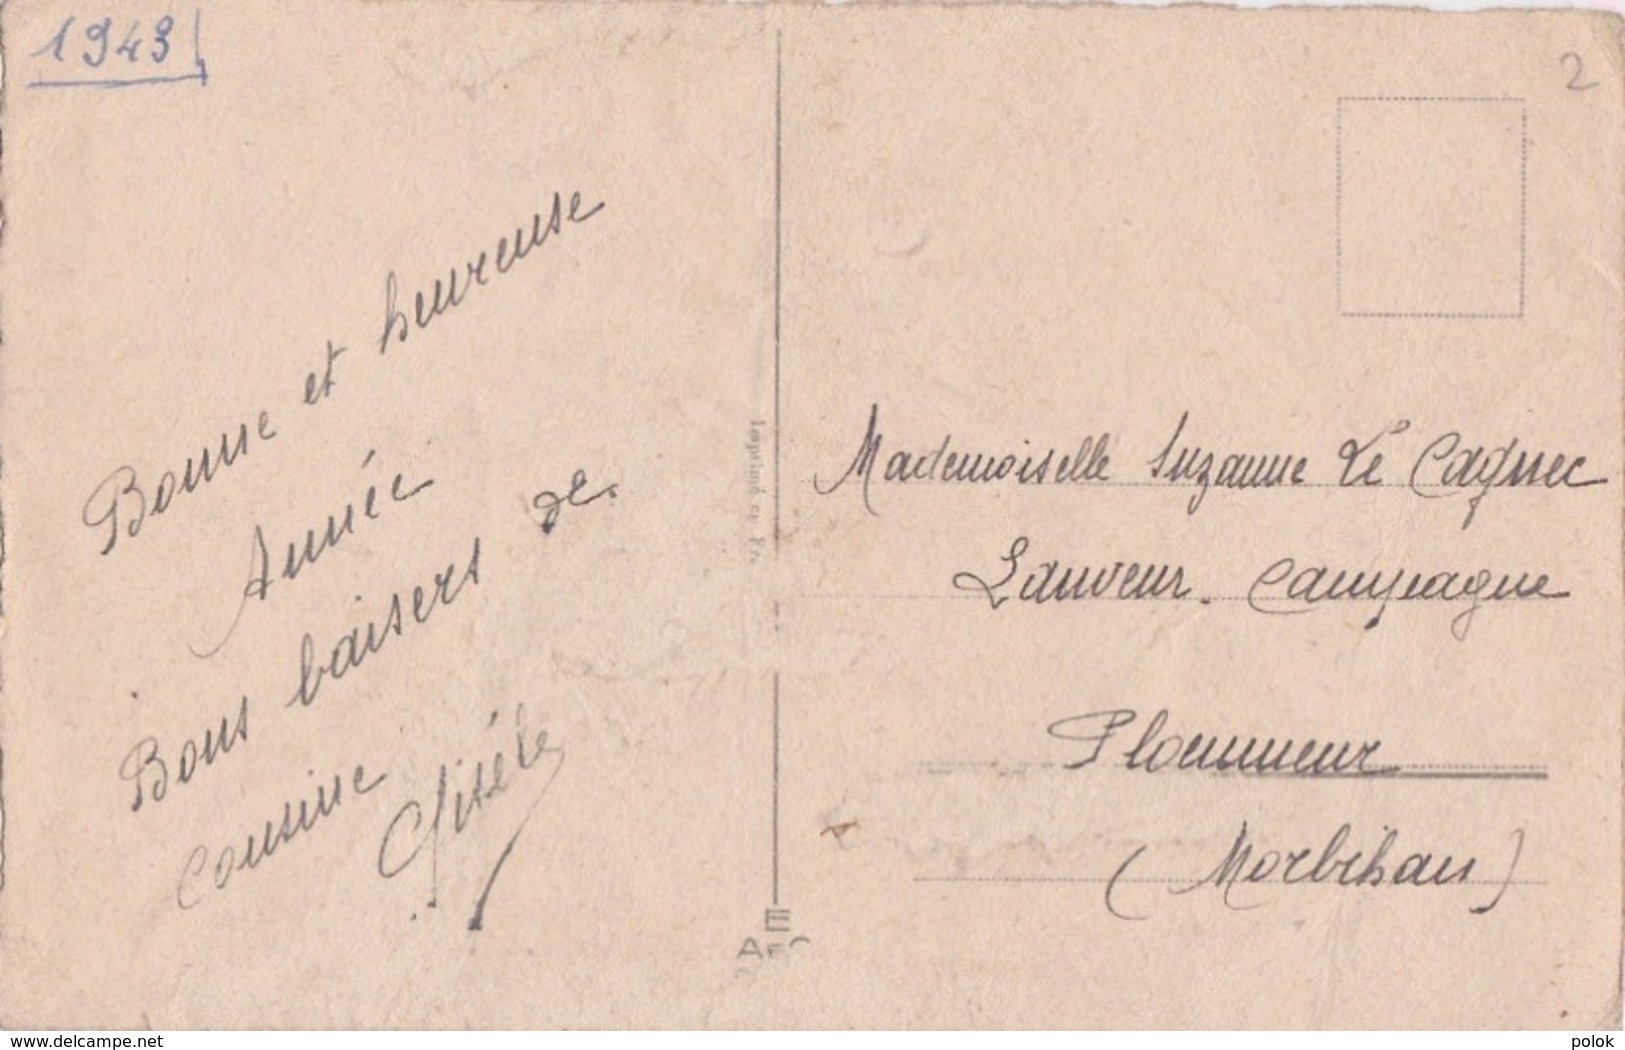 1943
2
Bonne et heureuse
Année
Bons baisers de
cousine
Gisèle
Imprimé en Fr.
Mademoiselle Suzanne Le Cagnec
Lanveur. Campagne
Ploemmeur
(Morbihan)
www.delcampe.net
polok